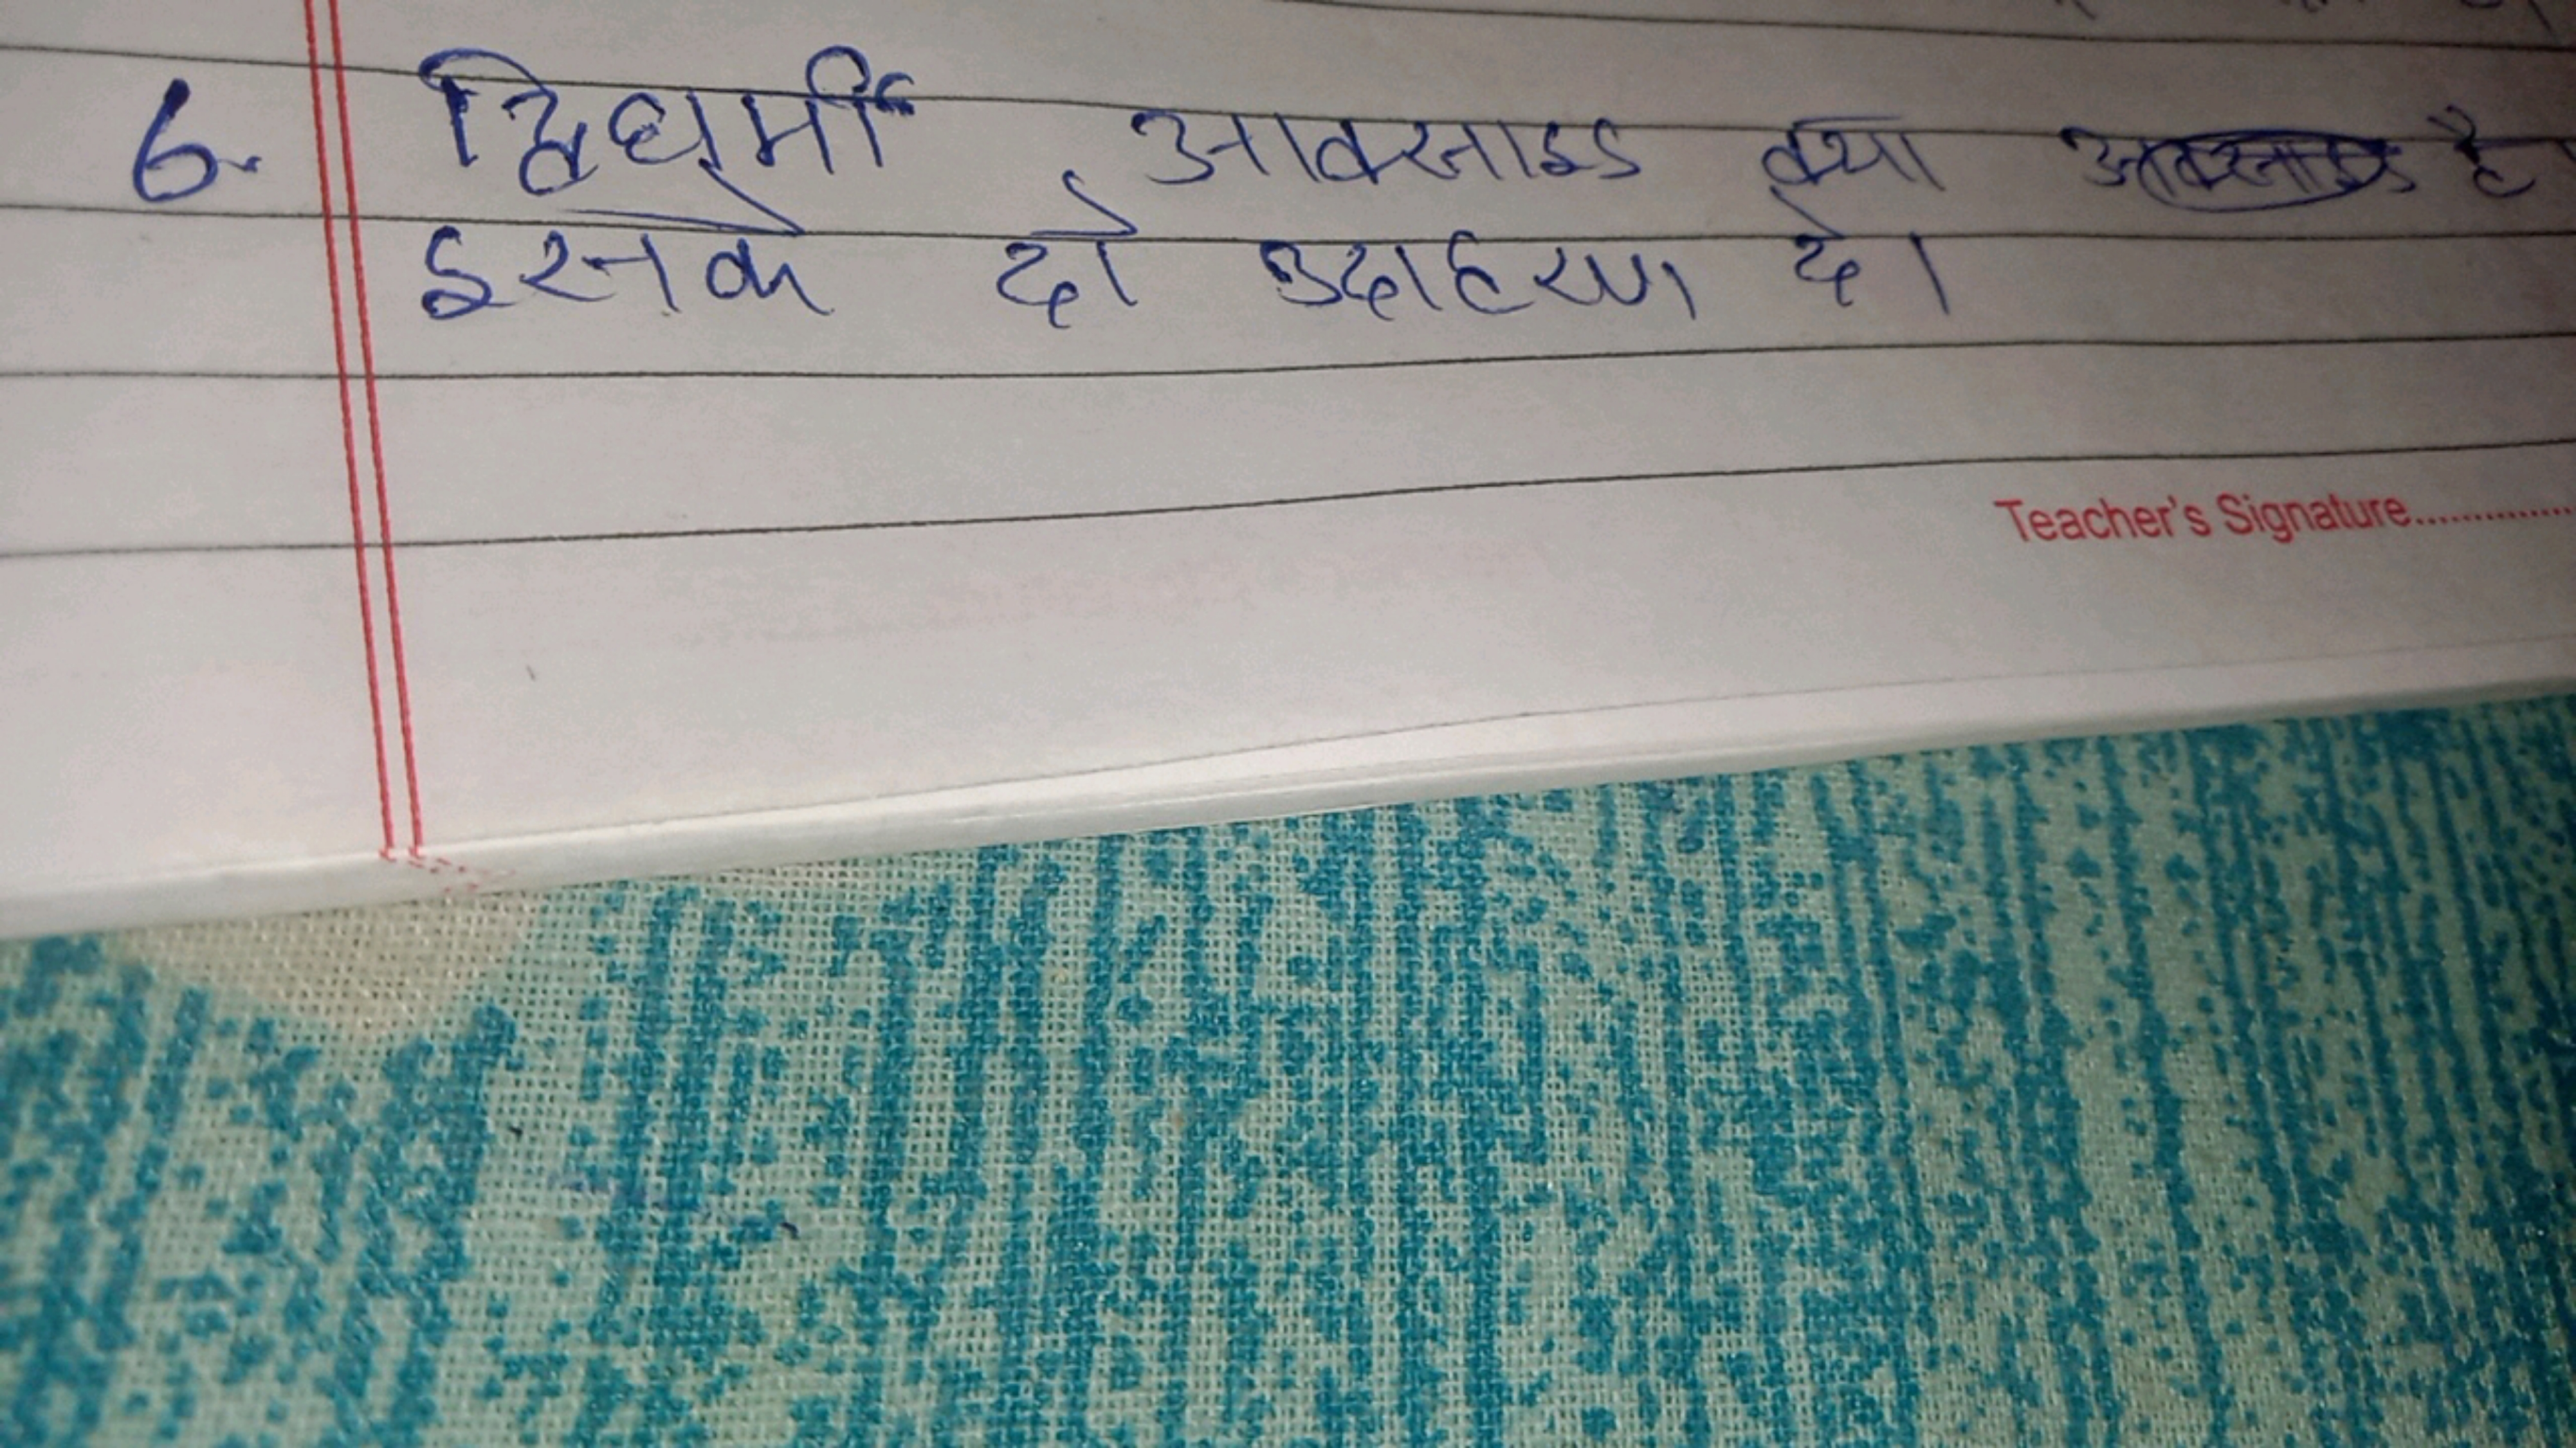 6. द्विधर्मी आक्साइड क्या है
इसके दो उदाहरण दे।
Teacher's Signature..............